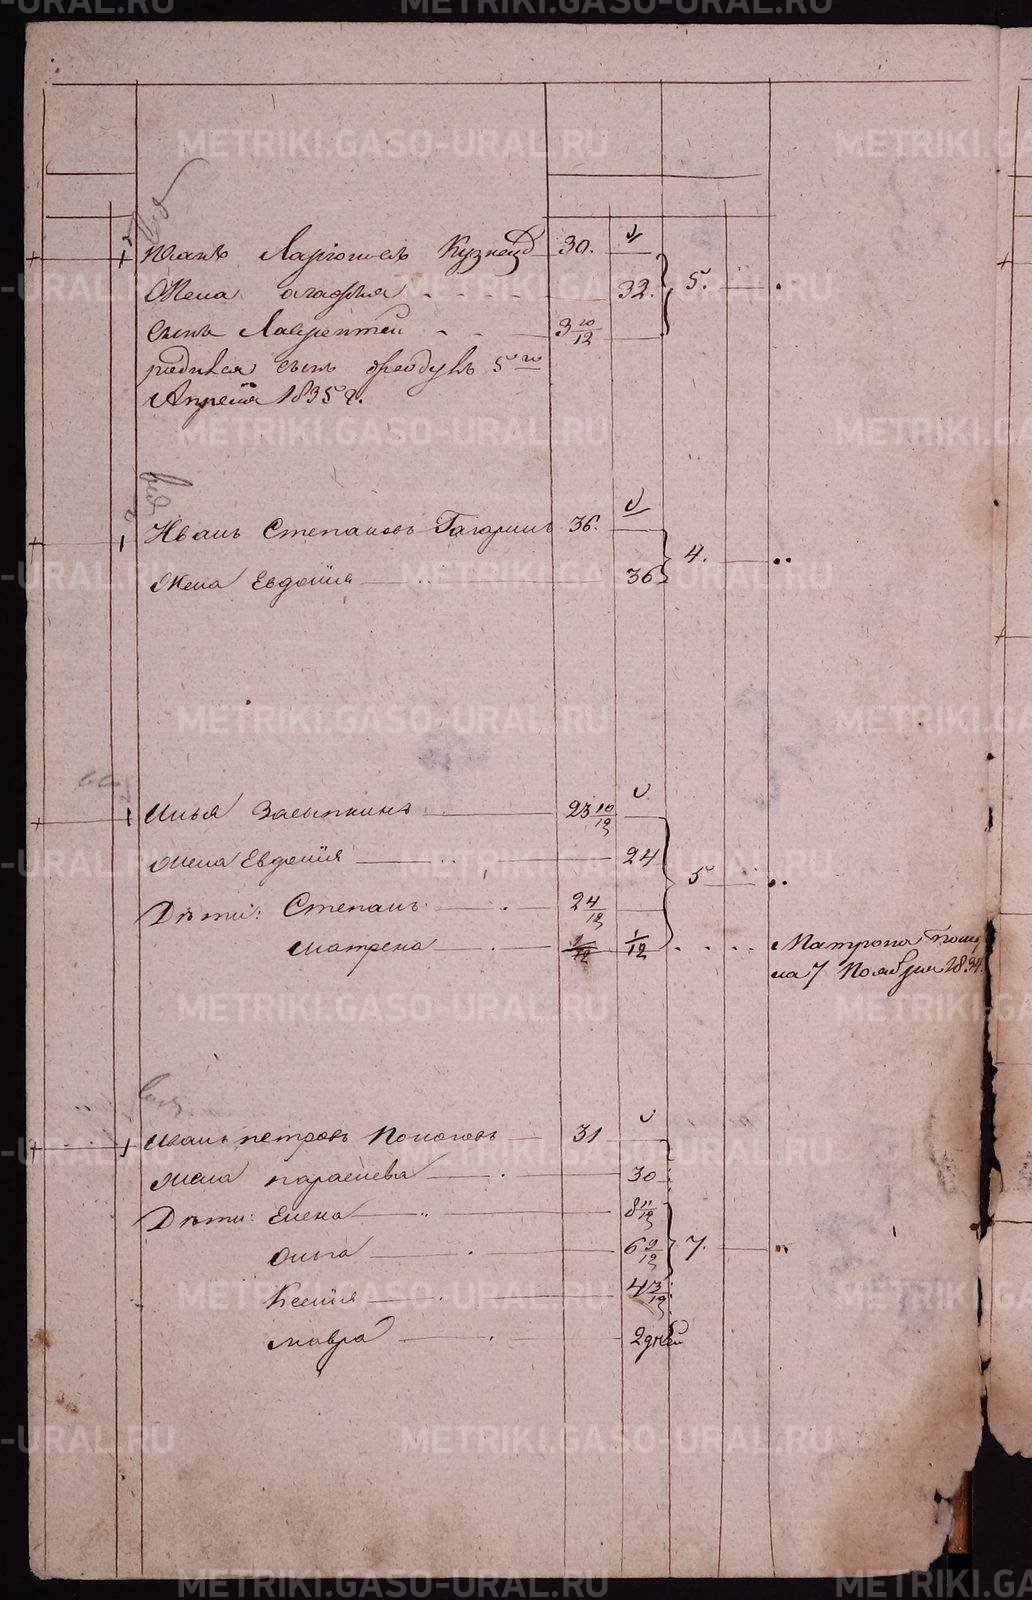 Иванъ Ларионовъ Кузнец 30.
Жена агафья 32. 5.
Сынъ Лаврентей 3 10/12
родился сынъ 5го
Апреля 1835 г.
Иванъ Степановъ Гагаринъ 36.
Жена Евдокия 36 4.
Илья Засыпкинъ 23 10/12
Жена Евдокия 24 5
Дѣти: Степанъ 2 4/12
Матрена 1/12 Матрона
на 7 Ноября 1834.
Иванъ петровъ Кононовъ 31
Жена параскева 30
Дѣти: Елена 8 11/12
Ольга 6 9/12 7.
Ксения 4 3/12
Мавра 2 дней
METRIKI.GASO-URAL.RU